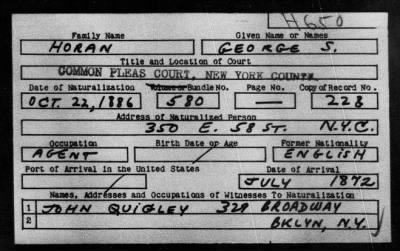 H650
Family Name Given Name or Names
HORAN GEORGE S.
Title and Location of Court
COMMON PLEAS COURT, NEW YORK COUNTY
Date of Naturalization Volume or Bundle No. Page No. Copy of Record No.
OCT. 22, 1886 580 — 228
Address of Naturalized Person
350 E. 58 ST. N.Y.C.
Occupation Birth Date or Age Former Nationality
AGENT ENGLISH
Port of Arrival in the United States Date of Arrival
JULY 1872
Names, Addresses and Occupations of Witnesses To Naturalization
1 JOHN QUIGLEY 329 BROADWAY
2 BKLYN, N.Y.